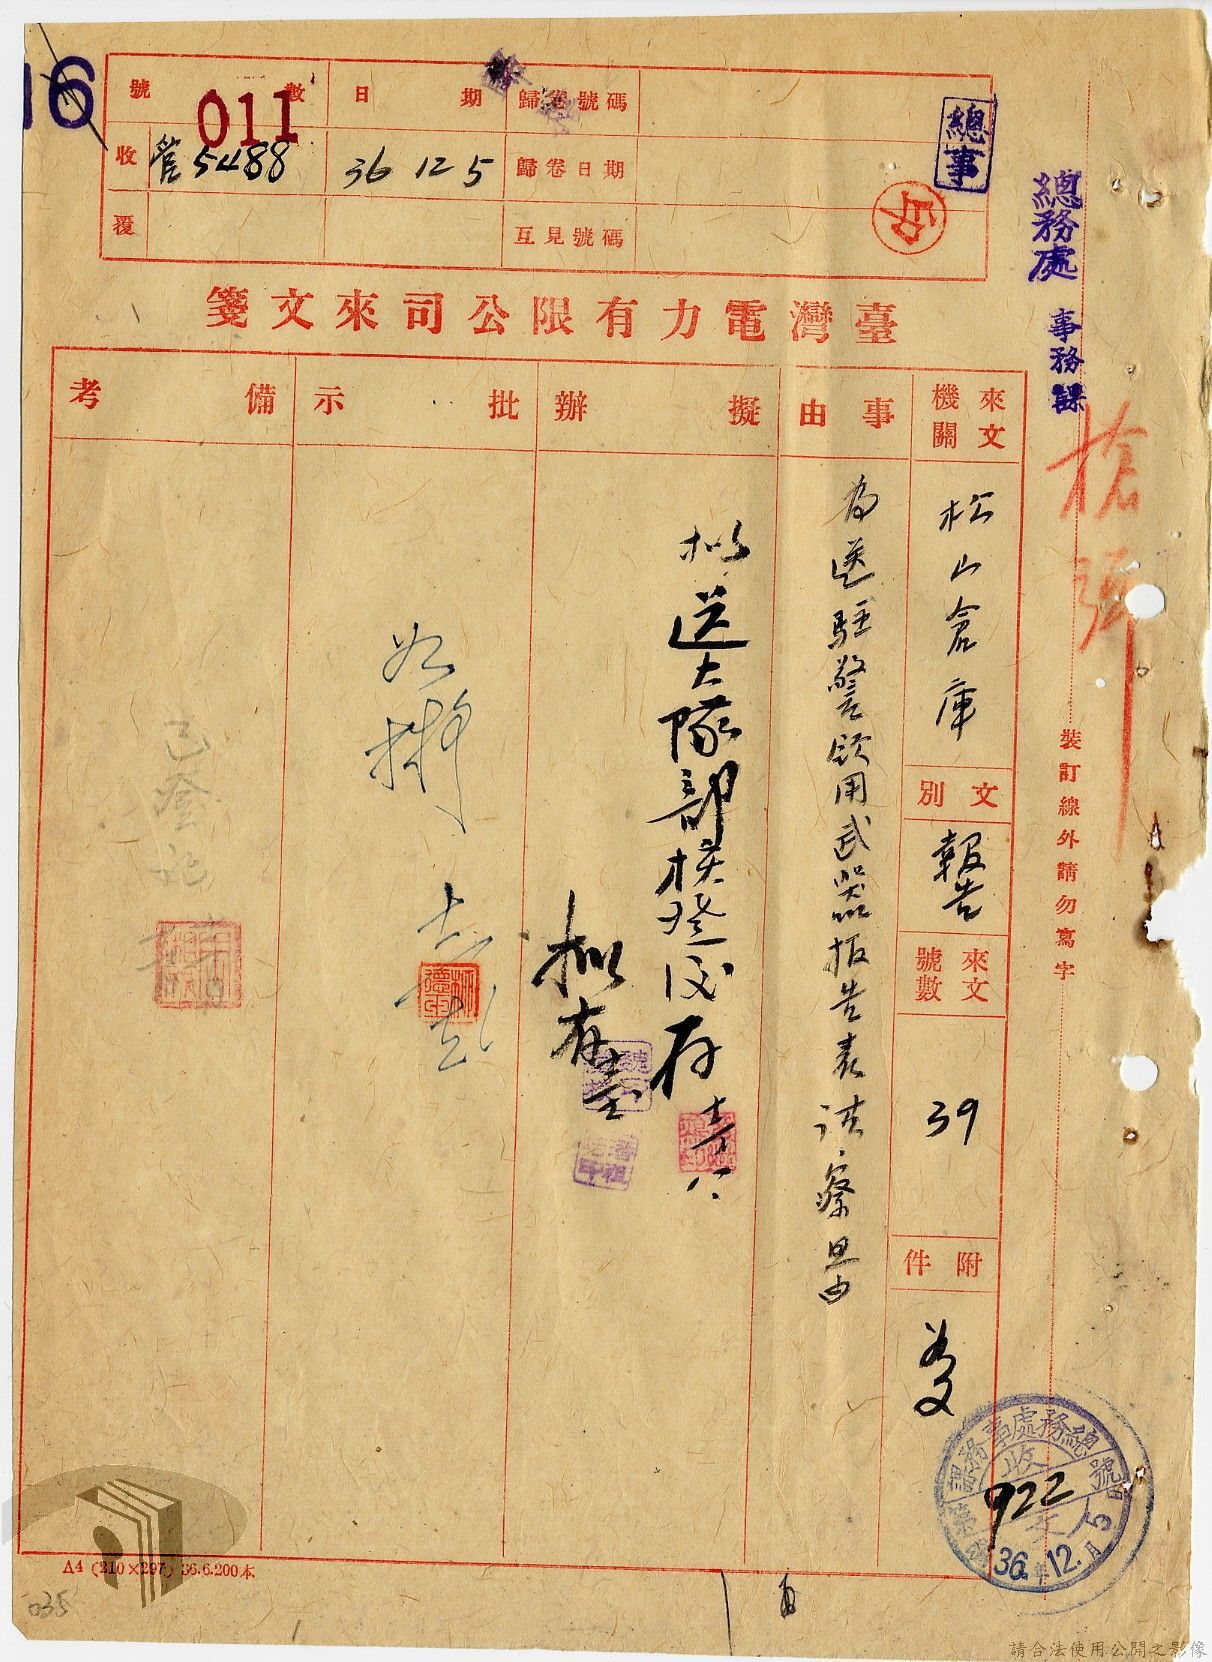 16
號數 011
日期
歸卷號碼
收 管5488
36 12 5
歸卷日期
覆
互見號碼
總事
總務處 事務課
臺灣電力有限公司來文箋
來文機關
松山倉庫
文別
報告
來文號數
39
附件
事由
為送駐警領用武器報告表請察照由
擬辦
擬送大隊部核登後存
擬存查
批示
如擬
備考
已登記
裝訂線外請勿寫字
總務處事務課
收文
第922號
36年12月5日
A4 (210×297) 36.6.200本
035
請合法使用公開之影像